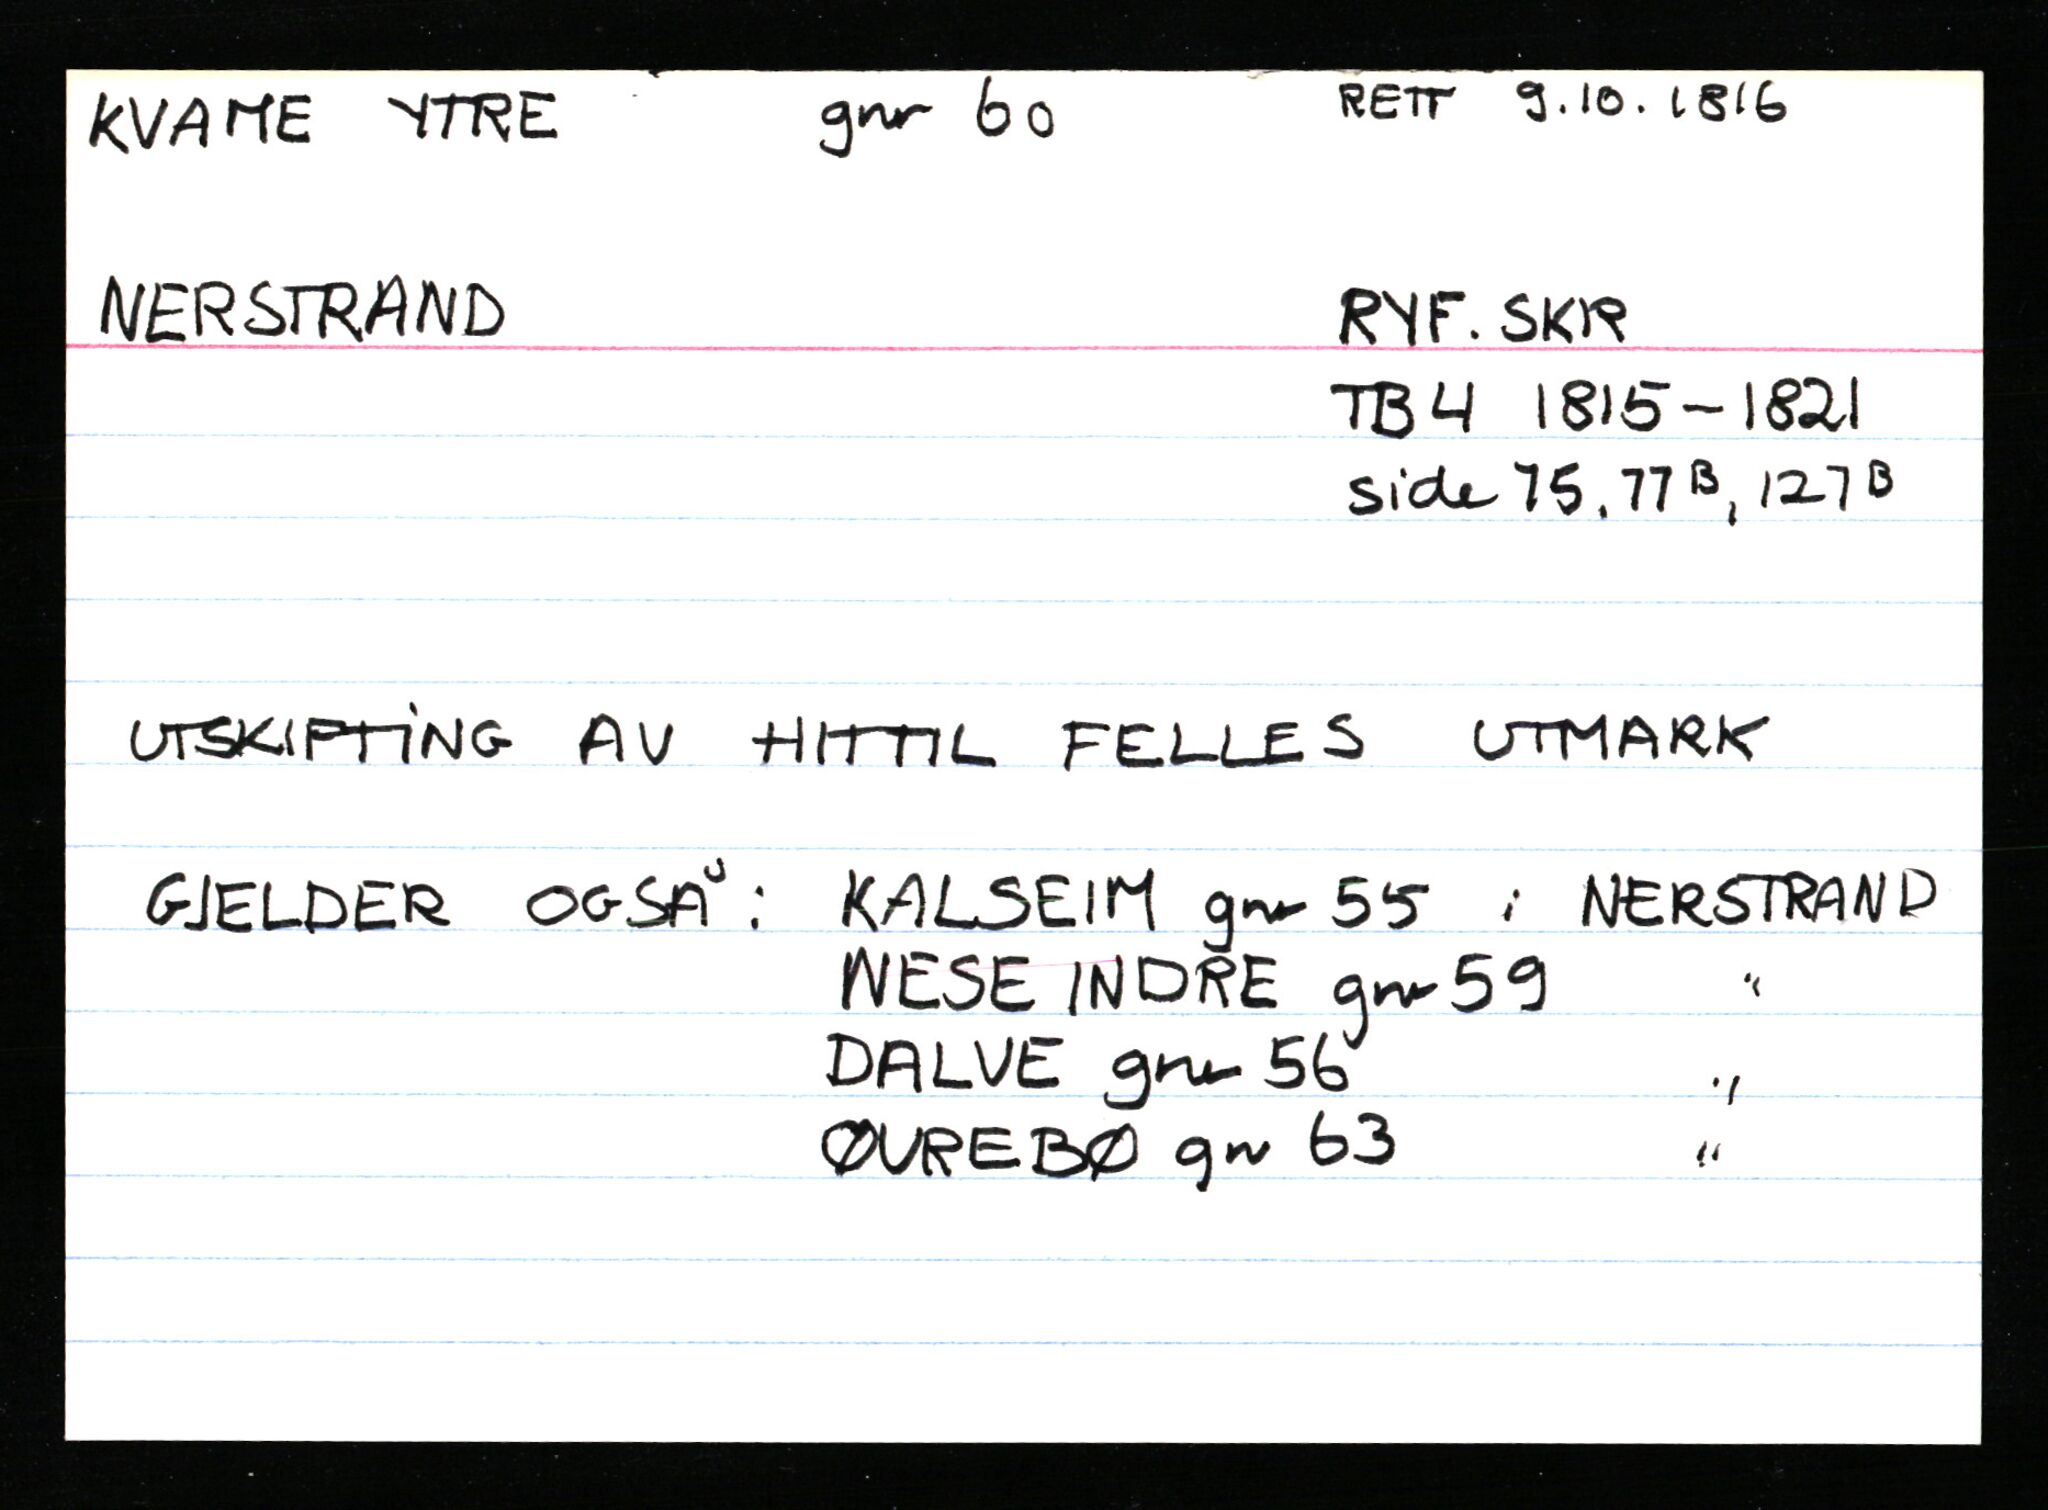 KVAME YTRE gnr 60 RETT 9.10.1816
NERSTRAND RYF. SKR
TB 4 1815-1821
side 75, 77B, 127B
UTSKIFTING AV HITTIL FELLES UTMARK
GJELDER OGSÅ: KALSEIM gnr 55 i NERSTRAND
NESE INDRE gnr 59 "
DALVE gnr 56 "
ØVREBØ gnr 63 "